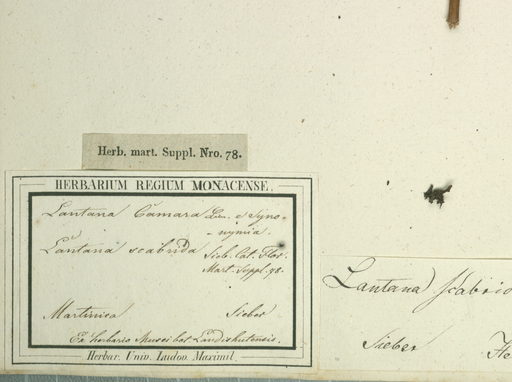 Herb. mart. Suppl. Nro. 78.
HERBARIUM REGIUM MONACENSE.
Lantana Camara Lin. e Syno-
-nymia.
Lantana scabrida Sieb. Cat. Flor.
Mart. Suppl. 78.
Martinica Sieber
Ex herbario Musei bot Landishutensis.
Herbar. Univ. Ludov. Maximil.
Lantana scabrid
Sieber He